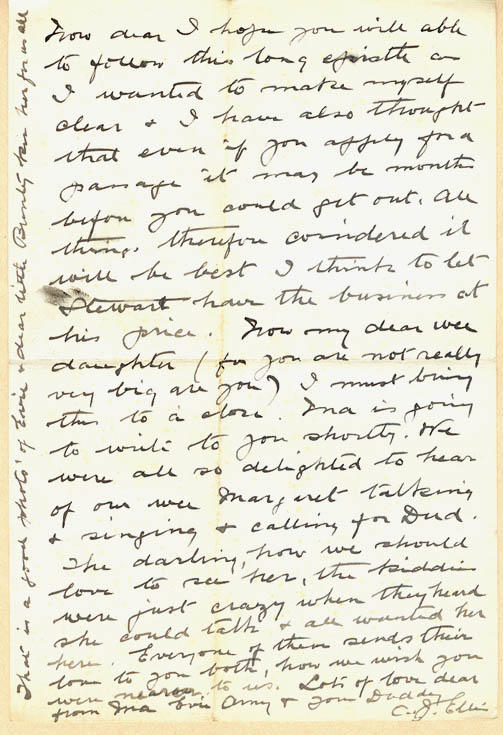 Now dear I hope you will able
to follow this long epistle as
I wanted to make myself
clear & I have also thought
that even if you apply for a
passage it may be months
before you could get out. All
things therefore coindered it
will be best I think to let
Stewart have the business at
his price. Now my dear wee
daughter (for you are not really
very big are you) I must bring
this to a close. Ma is going
to write to you shortly. We
were all so delighted to hear
of our wee Margaret talking
& singing & calling for Dud.
The darling, how we should
love to see her, the kiddies
were just crazy when they heard
she could talk & all wanted her
here. Everyone of them sends their
love to you both, how we wish you
were nearer to us. Lots of love dear
from Ma Evie Amy & your Daddy
C. J. Ellis
That is a good photo of Evie & dear little Bunty kiss her for us all